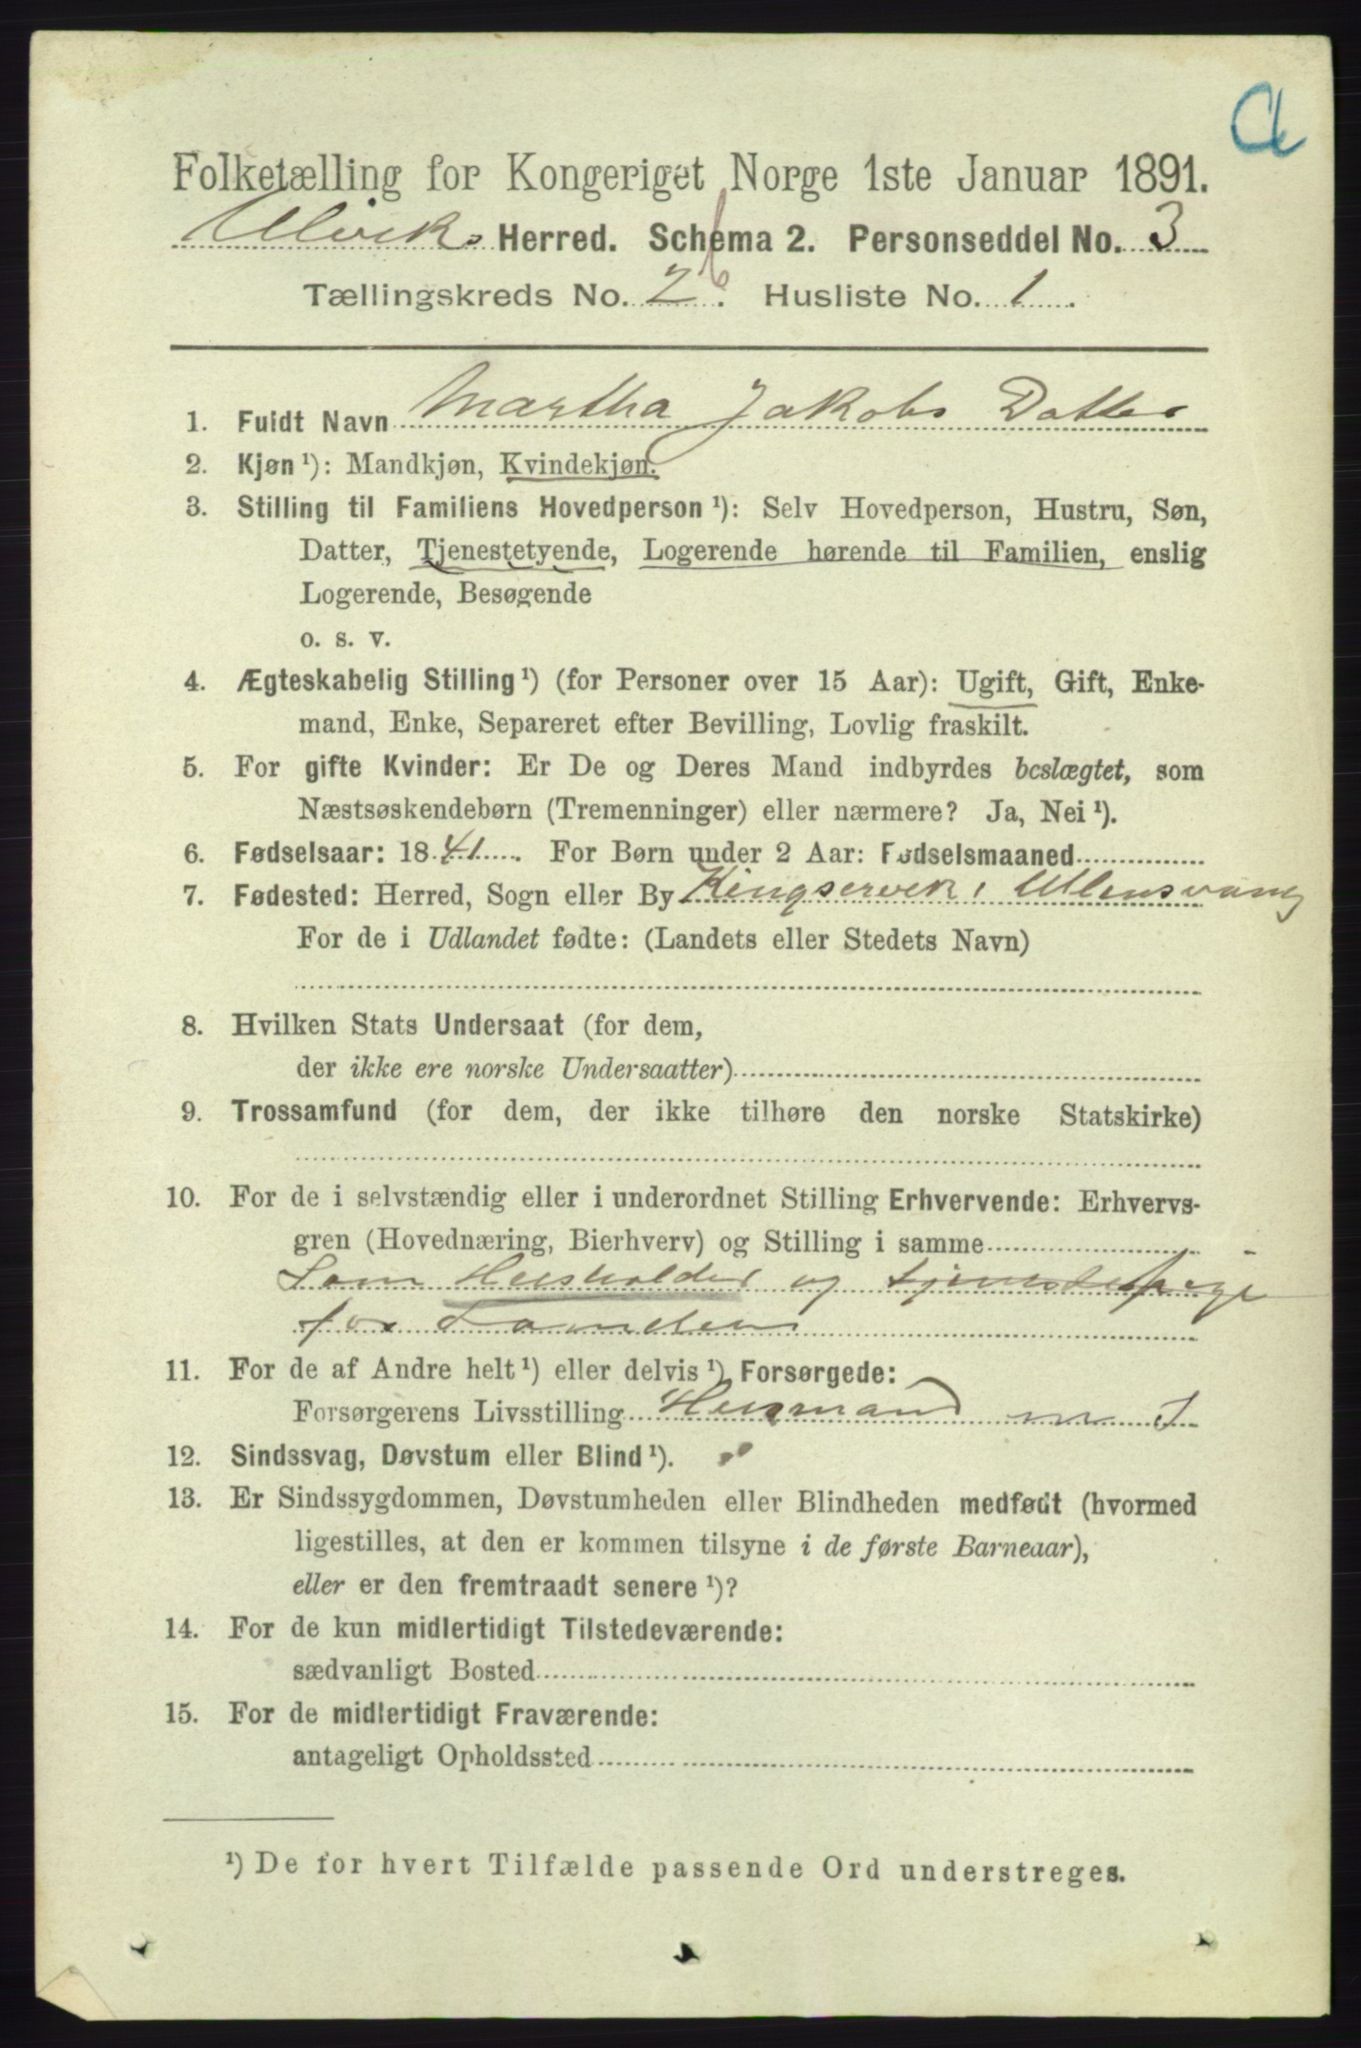 Folketælling for Kongeriget Norge 1ste Januar 1891.
Ulviks Herred. Schema 2. Personseddel No. 3
Tællingskreds No. 2 6. Husliste No. 1.
1. Fuldt Navn Martha Jakobs Datter
2. Kjøn ¹): Mandkjøn, Kvindekjøn.
3. Stilling til Familiens Hovedperson ¹): Selv Hovedperson, Hustru, Søn,
Datter, Tjenestetyende, Logerende hørende til Familien, enslig
Logerende, Besøgende
o. s. v.
4. Ægteskabelig Stilling ¹) (for Personer over 15 Aar): Ugift, Gift, Enke-
mand, Enke, Separeret efter Bevilling, Lovlig fraskilt.
5. For gifte Kvinder: Er De og Deres Mand indbyrdes beslægtet, som
Næstsøskendebørn (Tremenninger) eller nærmere? Ja, Nei ¹).
6. Fødselsaar: 1841. For Børn under 2 Aar: Fødselsmaaned
7. Fødested: Herred, Sogn eller By Kingservik, Ullensvang
For de i Udlandet fødte: (Landets eller Stedets Navn)
8. Hvilken Stats Undersaat (for dem,
der ikke ere norske Undersaatter)
9. Trossamfund (for dem, der ikke tilhøre den norske Statskirke)
10. For de i selvstændig eller i underordnet Stilling Erhvervende: Erhvervs-
gren (Hovednæring, Bierhverv) og Stilling i samme
Som Husholder og tjenestepige
for
11. For de af Andre helt ¹) eller delvis ¹) Forsørgede:
Forsørgerens Livsstilling Husmand m J
12. Sindssvag, Døvstum eller Blind ¹).
13. Er Sindssygdommen, Døvstumheden eller Blindheden medfødt (hvormed
ligestilles, at den er kommen tilsyne i de første Barneaar),
eller er den fremtraadt senere ¹)?
14. For de kun midlertidigt Tilstedeværende:
sædvanligt Bosted
15. For de midlertidigt Fraværende:
antageligt Opholdssted
¹) De for hvert Tilfælde passende Ord understreges.